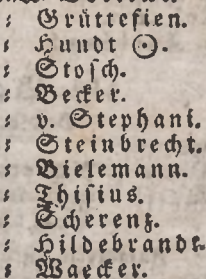 : Grüttefien.
: Hundt ☉.
: Stosch.
: Becker.
: v. Stephani.
: Steinbrecht.
: Bielemann.
: Thisius.
: Scherenz.
: Hildebrandt.
: Waecker.